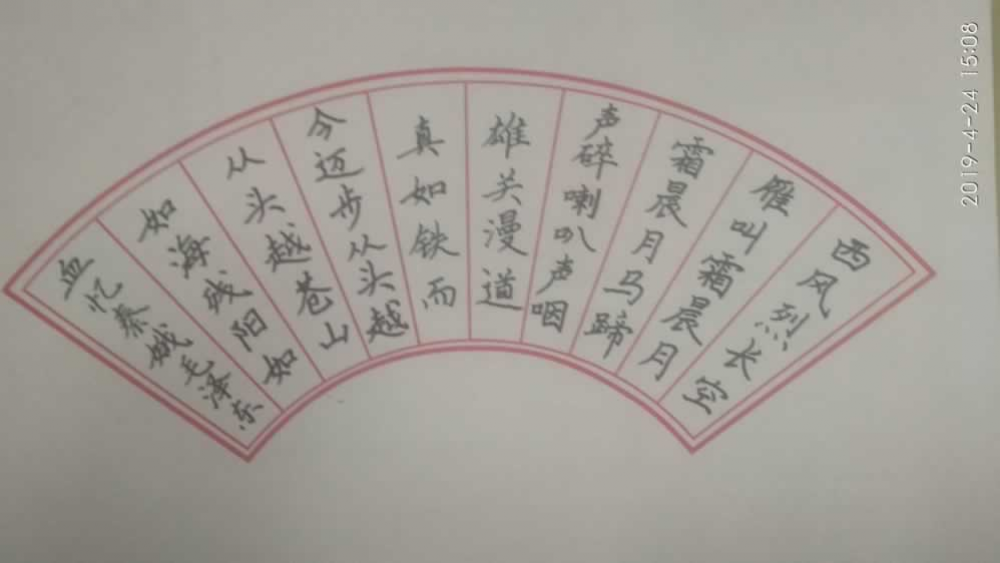 西风烈长空
雁叫霜晨月
霜晨月马蹄
声碎喇叭声咽
雄关漫道
真如铁而
今迈步从头越
从头越苍山
如海残阳如
血忆秦娥毛泽东
2019-4-24 15:08